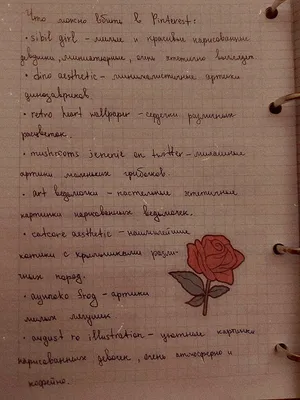 Что можно вбить в Pinterest:
• sibil girl – милые и красивые нарисованные
девушки, миниатюрные, очень эстетично выглядят
• dino aesthetic – минималистичные артики
динозавриков.
• retro heart wallpaper – сердечки различных
расцветок.
• mushrooms on twitter – милашные
артики маленьких грибочков.
• art ведьмочки – постельные эстетичные
картинки нарисованных ведьмочек.
• catcore aesthetic – наимилейшие
котики с крылышками разли-
чных пород.
• frog – артики
милых лягушек
• august ro illustration – уютная картинка
нарисованных девочек, очень атмосферно и
кофейно.